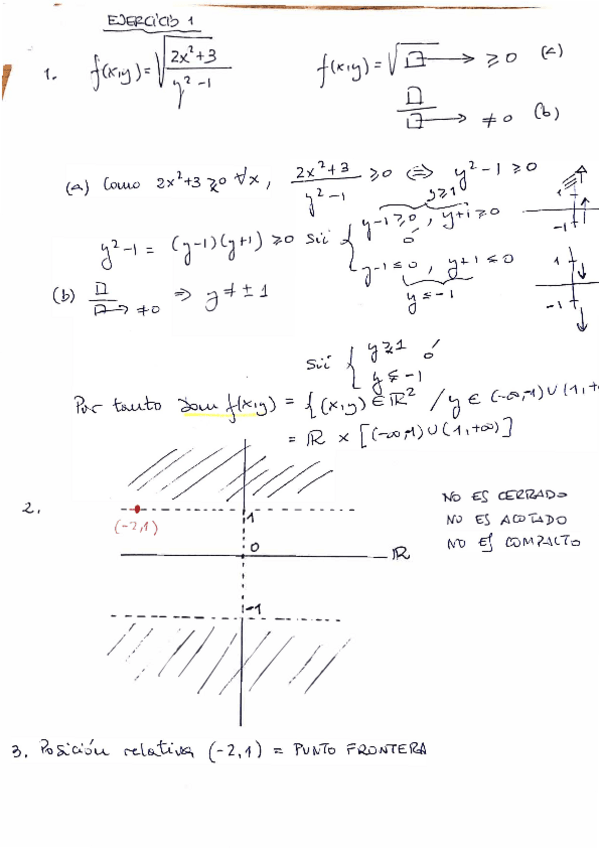 EJERCICIO 1
1. f(x,y) = √((2x²+3)/(y²-1)) f(x,y) = √□ → ≥ 0 (a)
□/□ → ≠ 0 (b)
(a) Como 2x²+3 ≥ 0 ∀x, (2x²+3)/(y²-1) ≥ 0 ⟺ y²-1 ≥ 0
y≥1
y²-1 = (y-1)(y+1) ≥ 0 sii { y-1≥0, y+1≥0
ó
y-1≤0, y+1≤0
y≤-1
1
-1
1
-1
(b) □/□ → ≠0 ⇒ y ≠ ±1
sii { y≥1 ó
y≤-1
Por tanto dom f(x,y) = {(x,y) ∈ ℝ² / y ∈ (-∞,-1) ∪ (1,+∞
= ℝ × [(-∞,-1) ∪ (1,+∞)]
2.
(-2,1)
1
0
ℝ
-1
NO ES CERRADO
NO ES ACOTADO
NO ES COMPACTO
3. Posición relativa (-2,1) = PUNTO FRONTERA